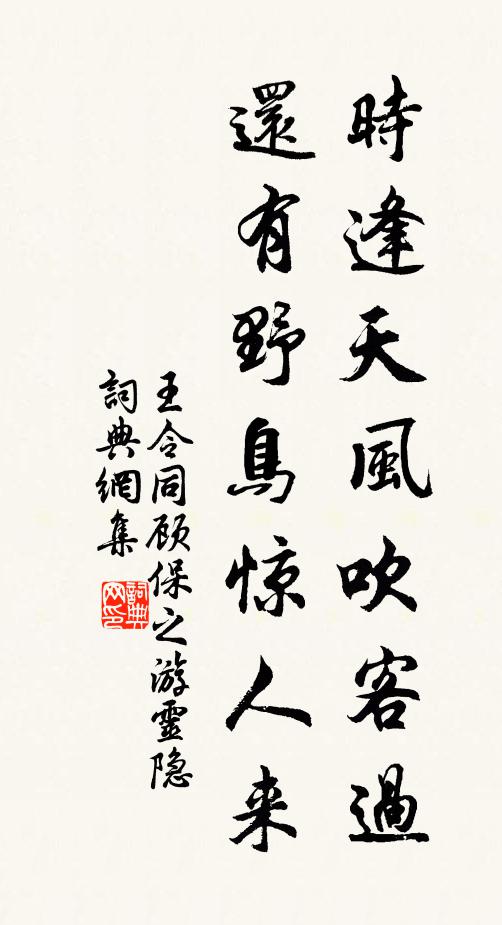 時逢天風吹客過
還有野鳥惊人来
王令同顾保之游靈隐
詞典網集
詞典网印